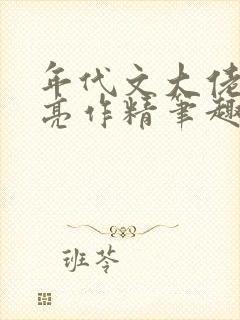 年代文大佬
亮作精笔趣
班苓